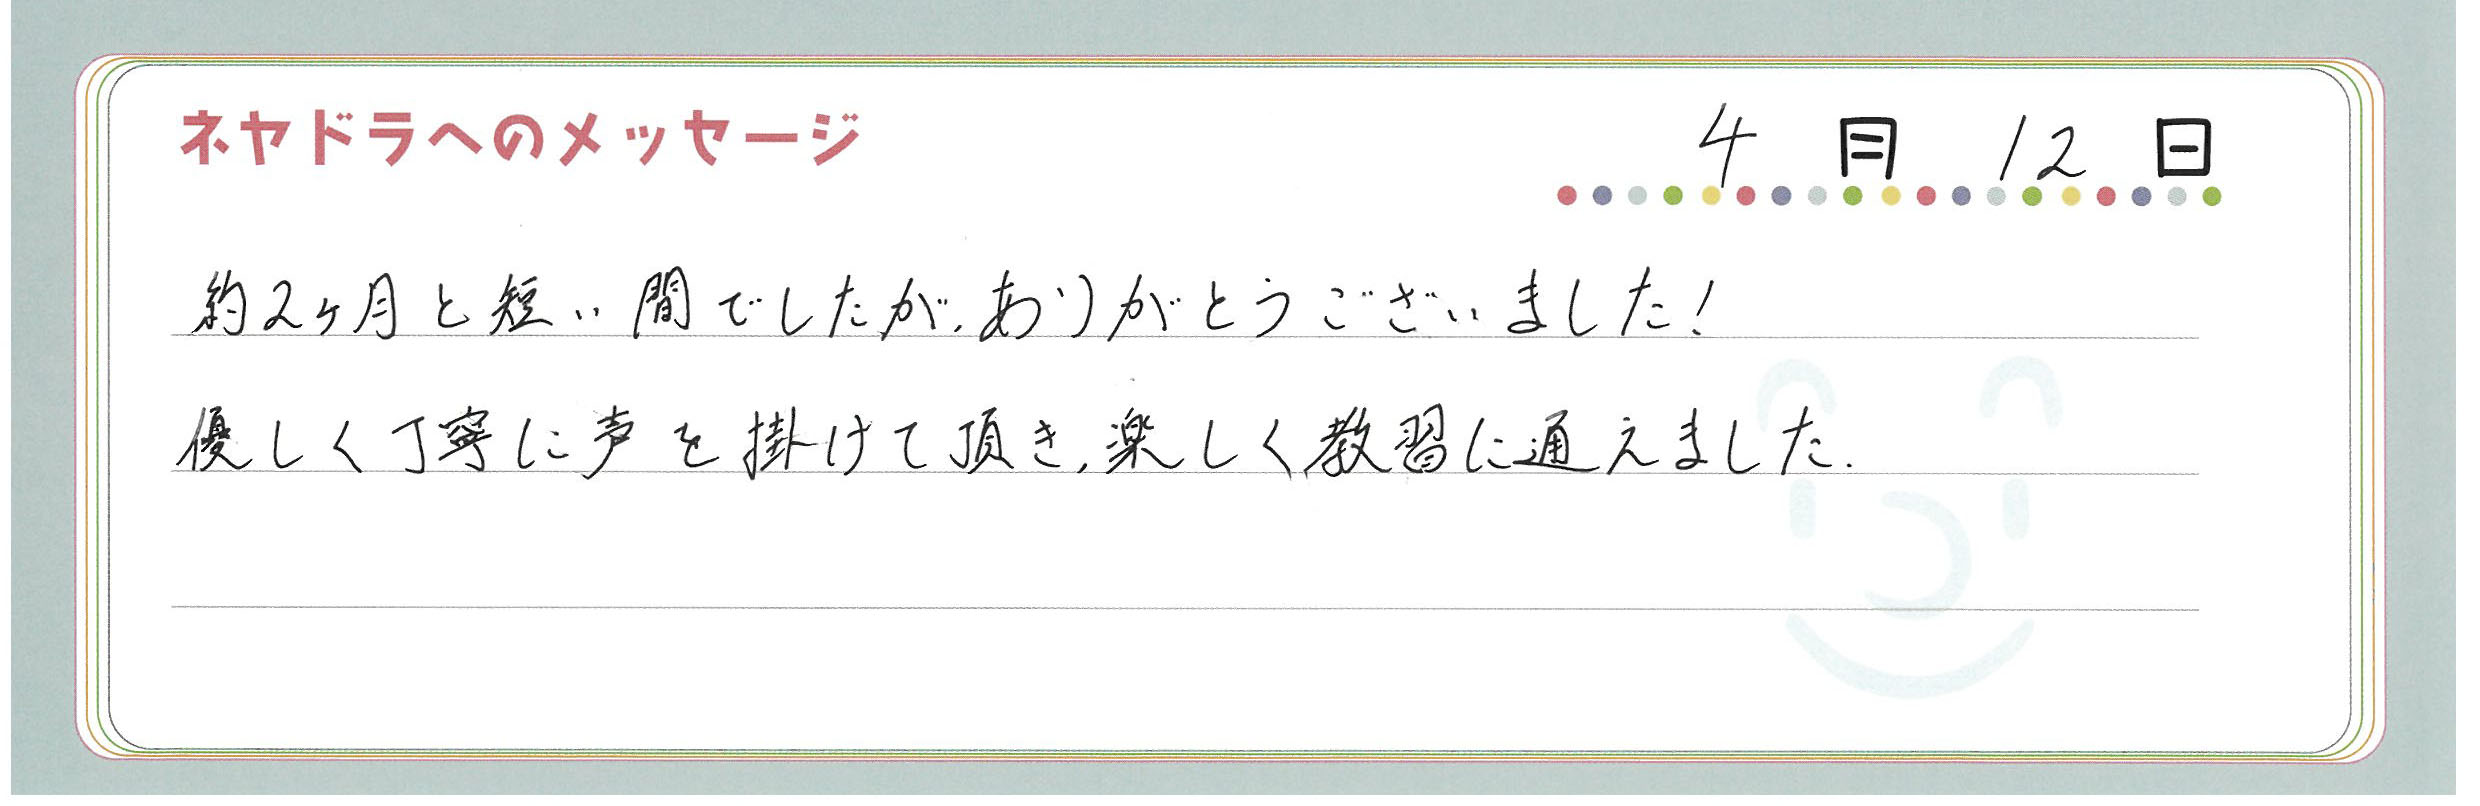 ネヤドラへのメッセージ
4月12日
約2ヶ月と短い間でしたが、ありがとうございました!
優しく丁寧に声を掛けて頂き、楽しく教習に通えました.